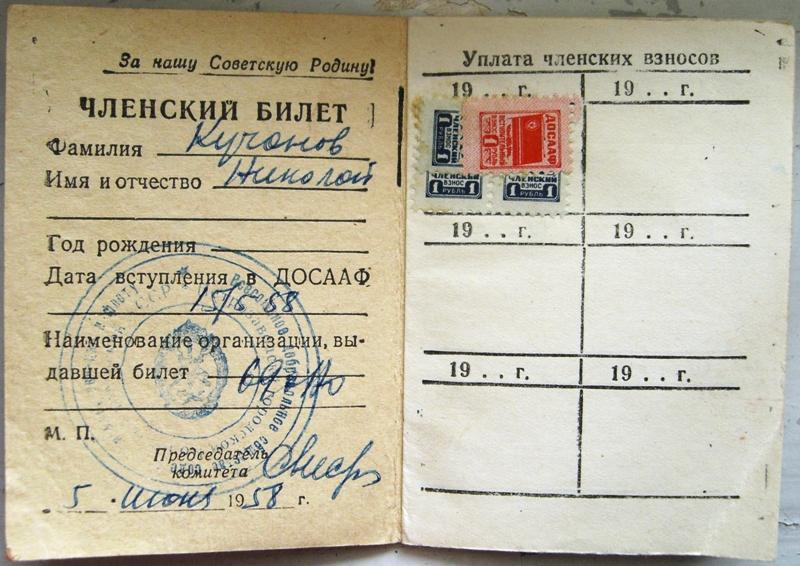 За нашу Советскую Родину!
ЧЛЕНСКИЙ БИЛЕТ
Фамилия Кучанов
Имя и отчество Николай
Год рождения
Дата вступления в ДОСААФ
15/5 58
Наименование организации, вы-
давшей билет
М. П.
Председатель
комитета
5 июня 1958 г.
Уплата членских взносов
19 . . г. 19 . . г.
ДОСААФ
1
1 РУБЛЬ
ЧЛЕНСКИЙ
ЧЛЕНСКИЙ
ВЗНОС
1 РУБЛЬ 1
ЧЛЕНСКИЙ
ВЗНОС
1 РУБЛЬ 1
19 . . г. 19 . . г.
19 . . г. 19 . . г.